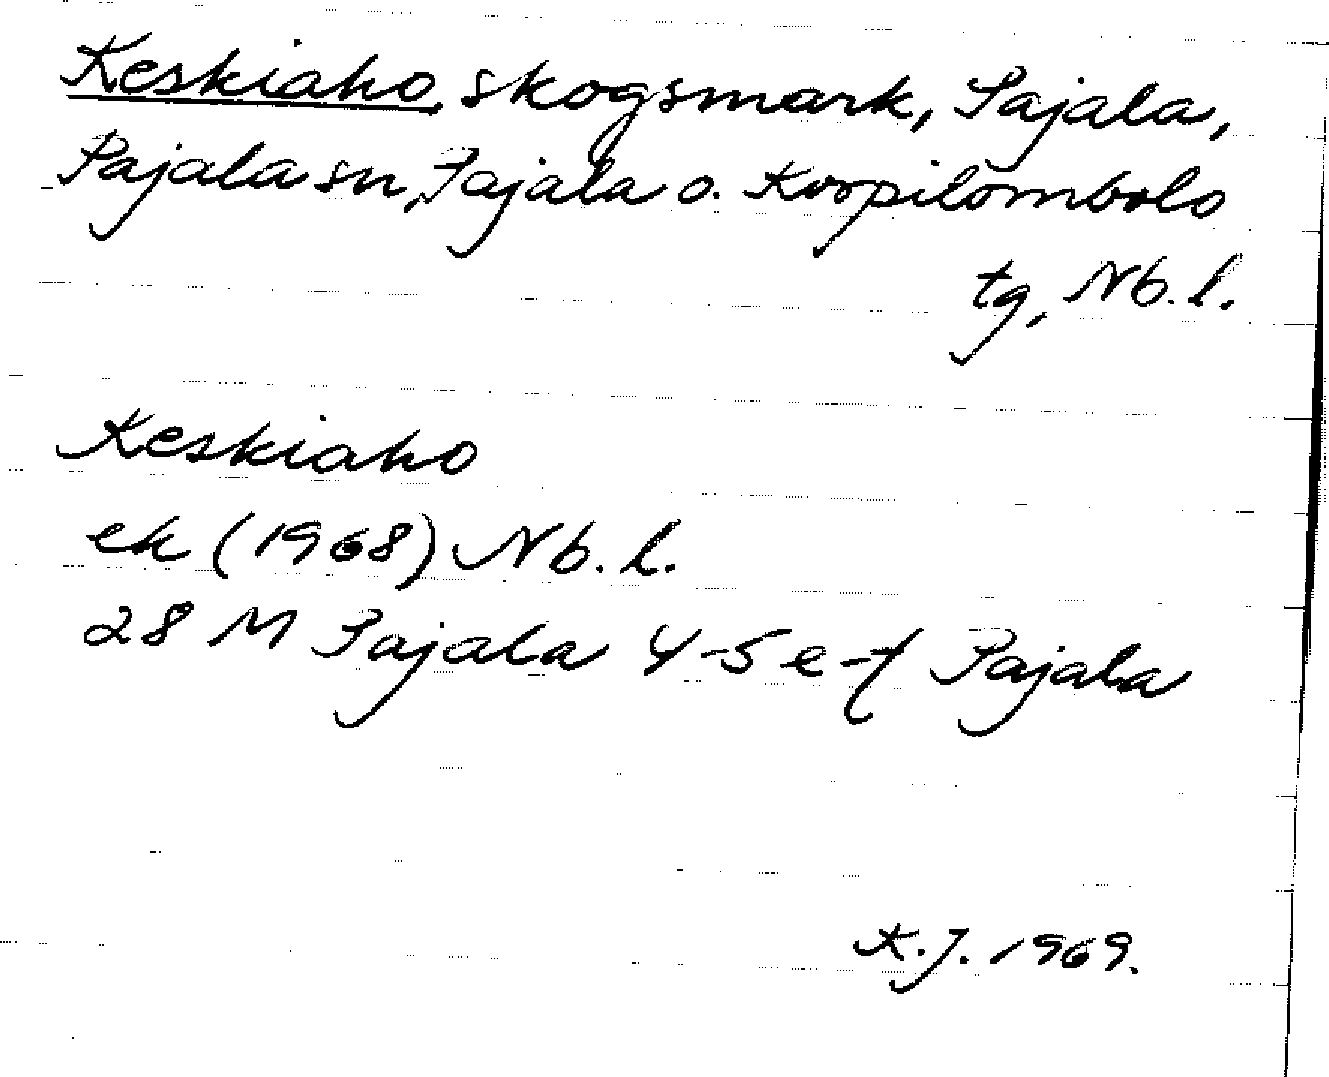 Keskiaho, skogsmark, Pajala,
Pajala sn, Pajala o. Korpilombolo
tg, Nb. l.
Keskiaho
ek (1968) Nb. l.
28 M Pajala 4-5 e-f Pajala
K.J. 1969.